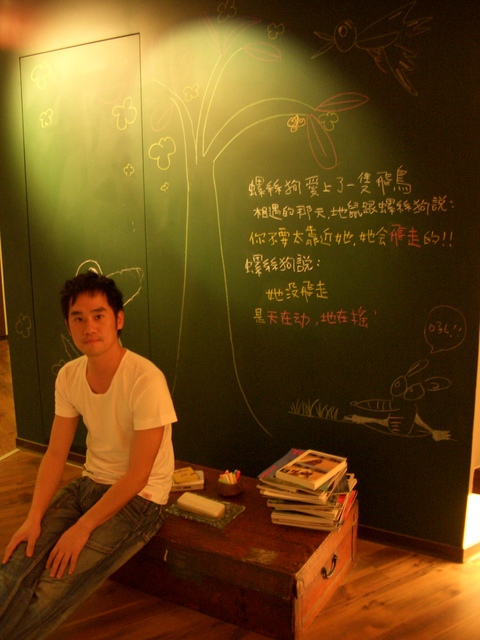 螺絲狗愛上了一隻飛鳥
相遇的那天,地鼠跟螺絲狗說:
你不要太靠近她,她會飛走的!!
螺絲狗說:
她沒飛走
是天在动,地在搖!